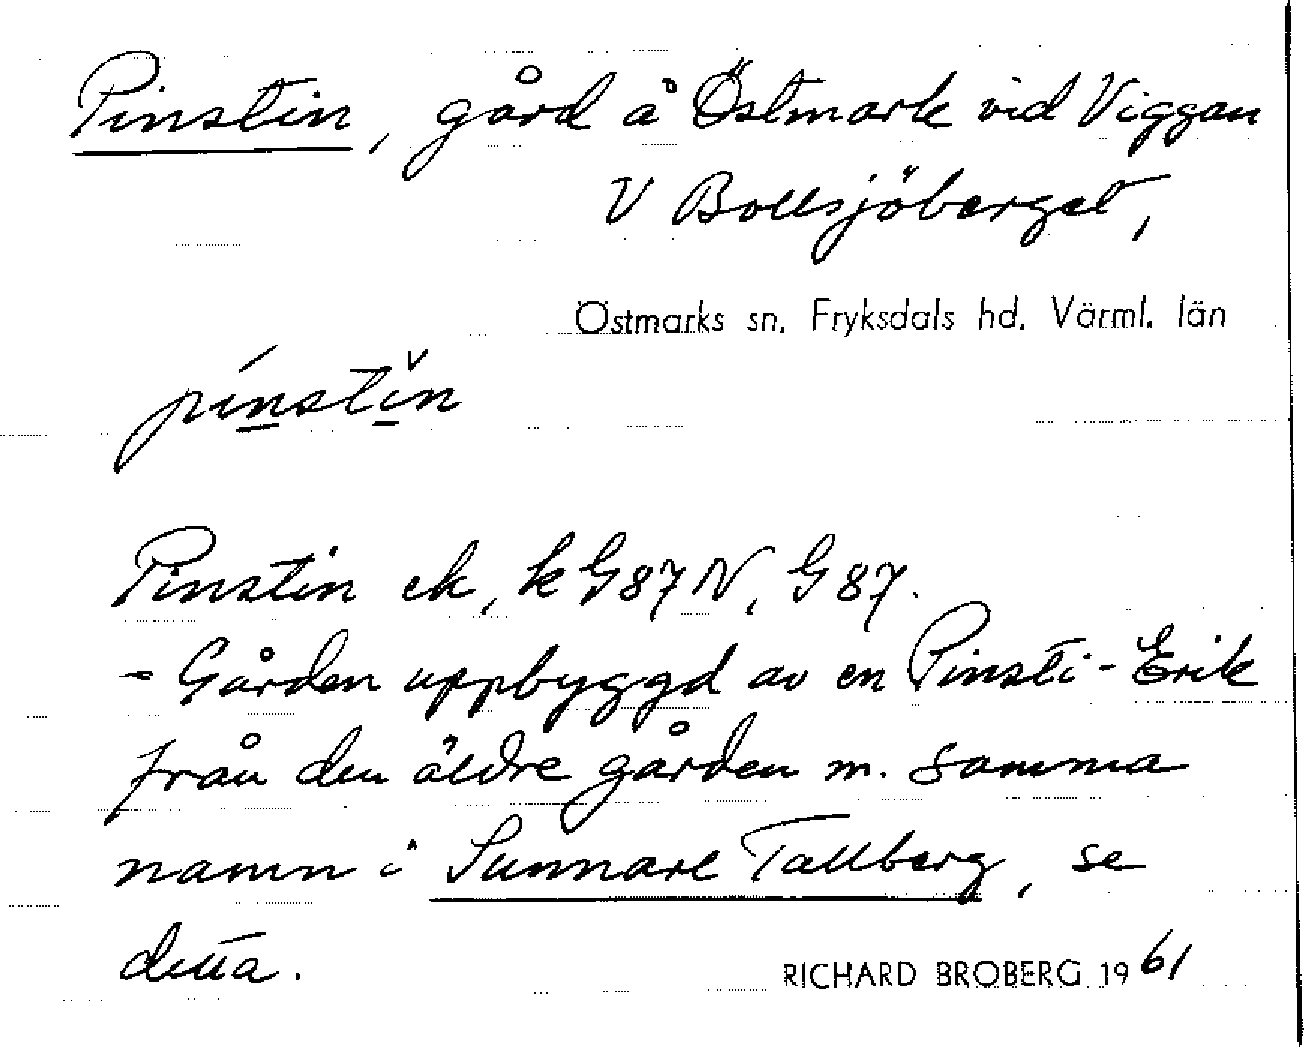 Pinstin, gård å Östmark vid Viggan
V Bollsjöberget,
Östmarks sn. Fryksdals hd. Värml. län
pínstǐn
Pinstin ek, k G87N, G87.
- Gården uppbyggd av en Pinsti-Erik
från den äldre gården m. samma
namn i Sunnare Tallberg, se
detta.
RICHARD BROBERG 1961